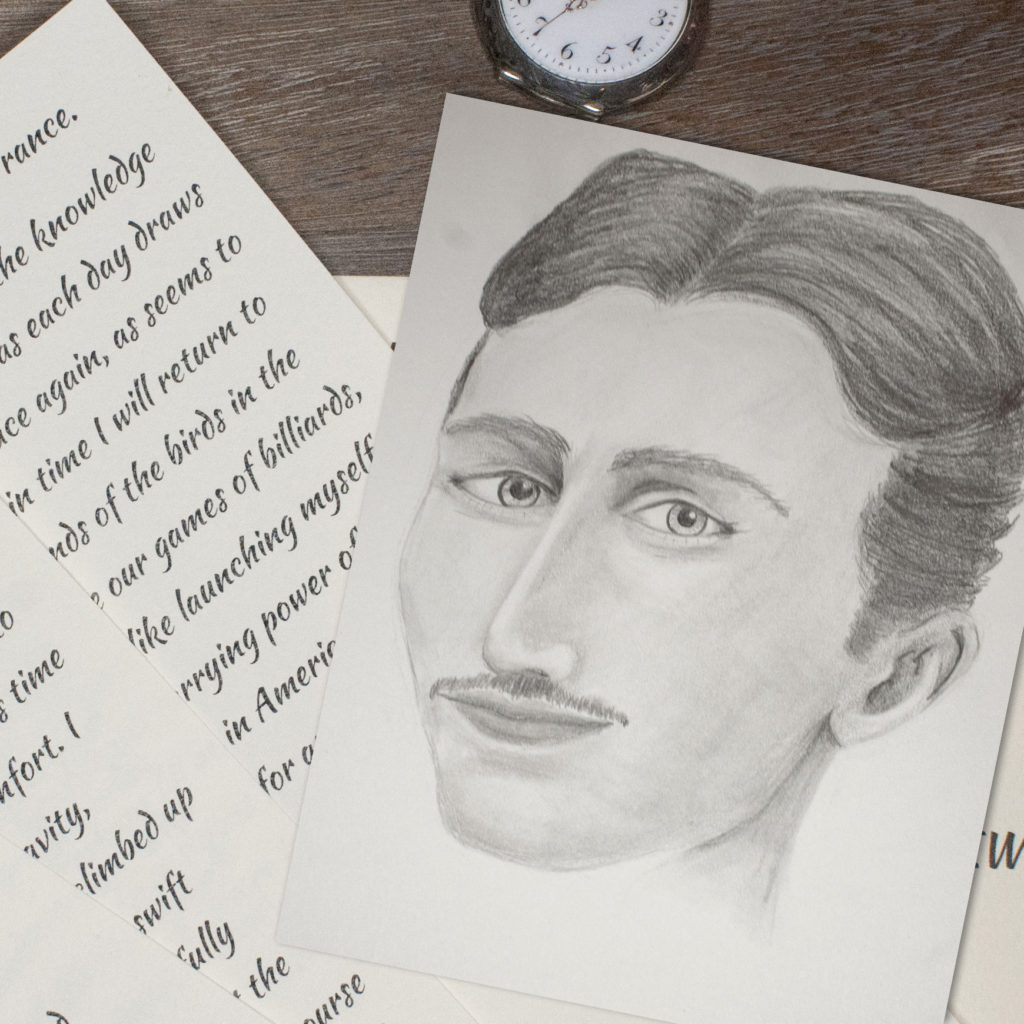 rance.
the knowledge
as each day draws
nce again, as seems to
in time I will return to
nds of the birds in the
e our games of billiards,
like launching myself
rrying power of
in Americ
for a
to
s time
nfort. I
avity,
climbed up
swift
fully
t the
ourse
7 6 5 4 3